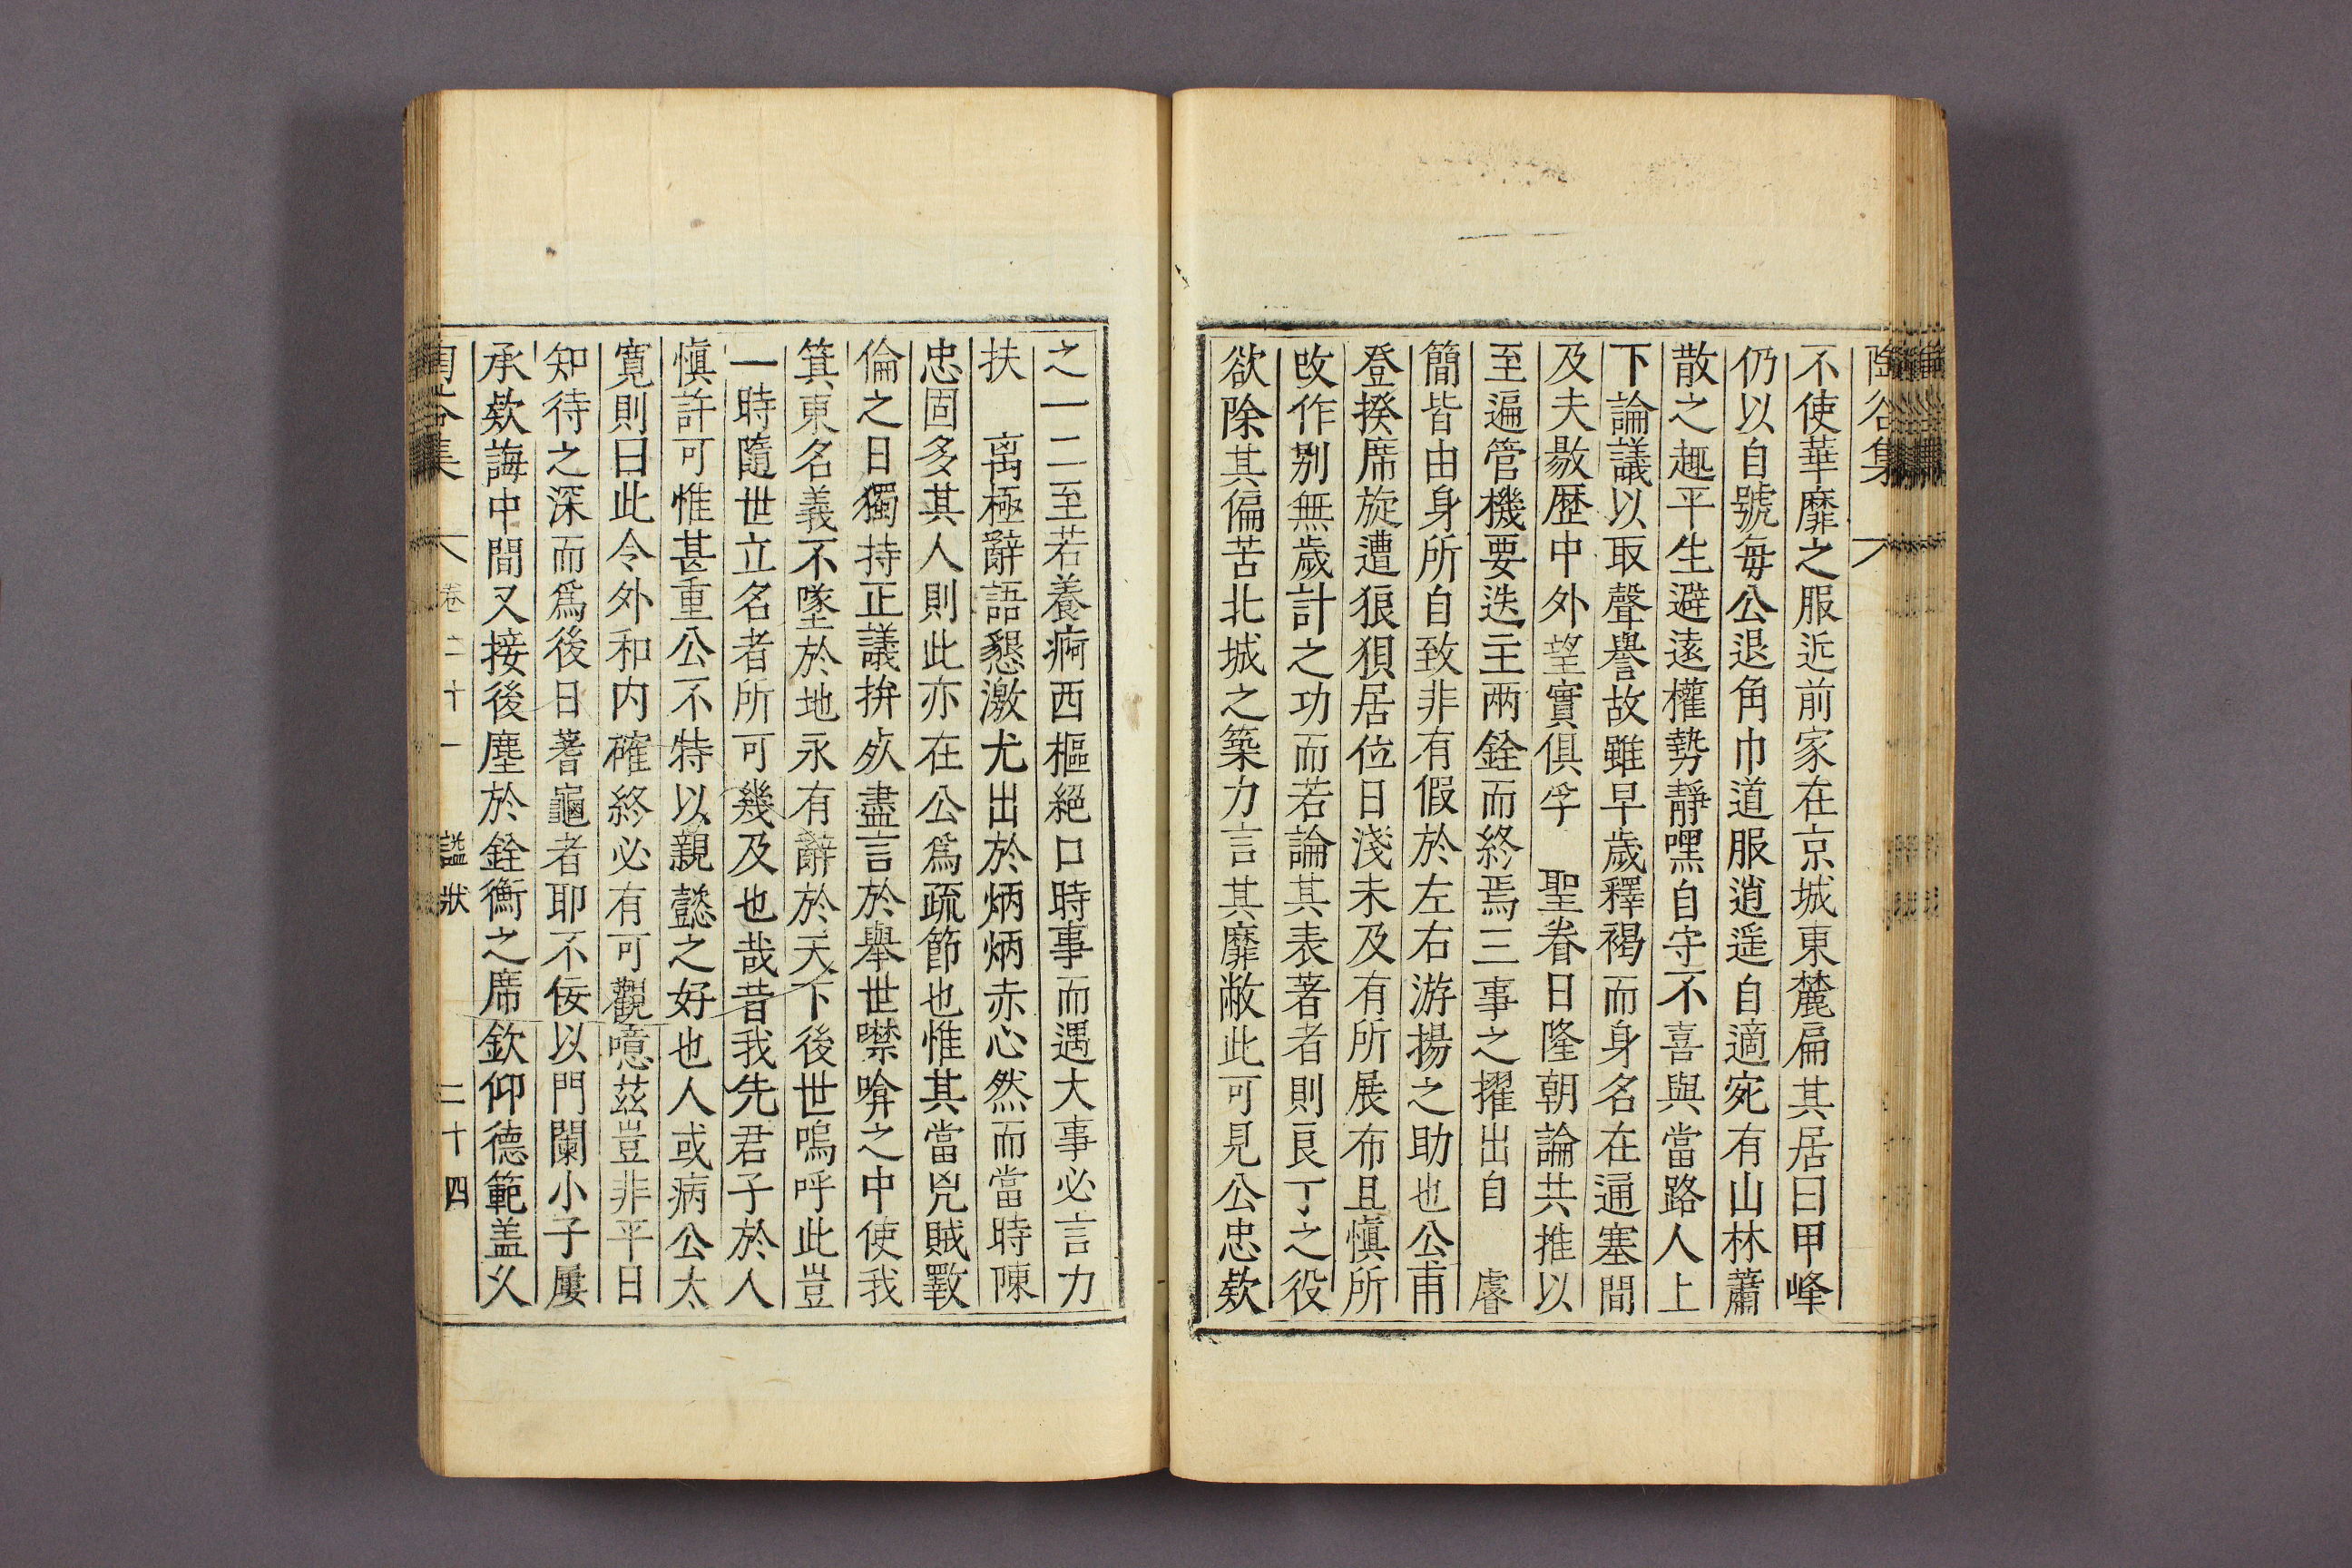 陶谷集
不使華靡之服近前家在京城東麓扁其居曰甲峰
仍以自號每公退角巾道服逍遥自適宛有山林蕭
散之趣平生避遠權勢靜嘿自守不喜與當路人上
下論議以取聲譽故雖早歲釋褐而身名在通塞間
及夫敭歷中外望實俱孚 聖眷日隆朝論共推以
至遍管機要迭主兩銓而終焉三事之擢出自 睿
簡皆由身所自致非有假於左右游揚之助也公甫
登揆席旋遭狼狽居位日淺未及有所展布且愼所
改作别無歲計之功而若論其表著者則良丁之役
欲除其偏苦北城之築力言其靡敝此可見公忠欵
之一二至若養痾西樞絕口時事而遇大事必言力
扶 离極辭語懇激尤出於炳炳赤心然而當時陳
忠固多其人則此亦在公爲疏節也惟其當兇賊斁
倫之日獨持正議拚死盡言於舉世噤喑之中使我
箕東名義不墜於地永有辭於天下後世嗚呼此豈
一時隨世立名者所可幾及也哉昔我先君子於人
愼許可惟甚重公不特以親懿之好也人或病公太
寬則曰此令外和内確終必有可觀噫茲豈非平日
知待之深而爲後日蓍龜者耶不佞以門闌小子屢
承欵誨中間又接後塵於銓衡之席欽仰德範盖久
陶谷集 卷二十一 諡狀 二十四